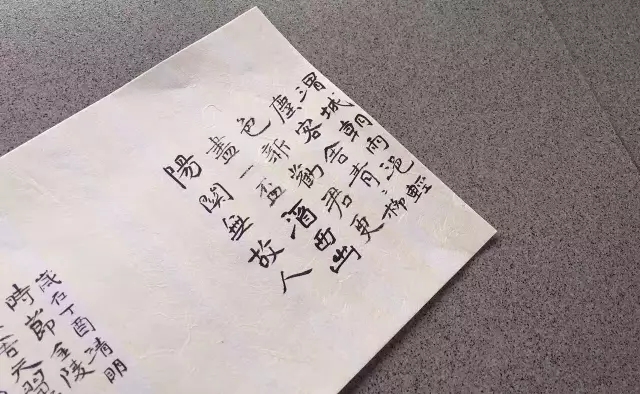 渭城朝雨浥輕
塵客舍青々柳
色新勸君更
盡一盃酒西出
陽關無故人
歲在丁酉清明
時節金陵
天習